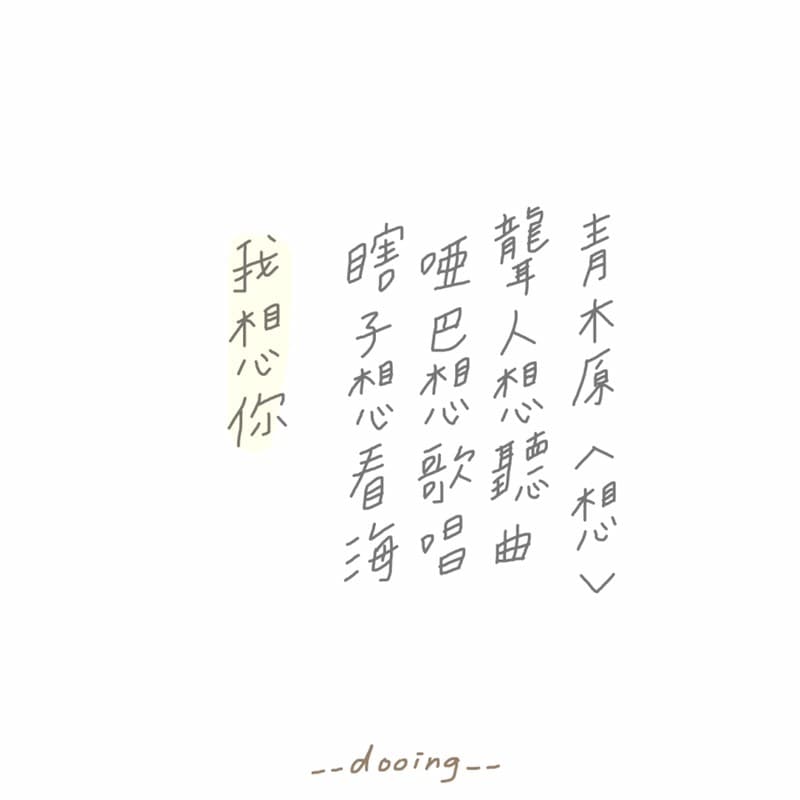 青木原〈想〉
聾人想聽曲
啞巴想歌唱
瞎子想看海
我想你
--dooing--